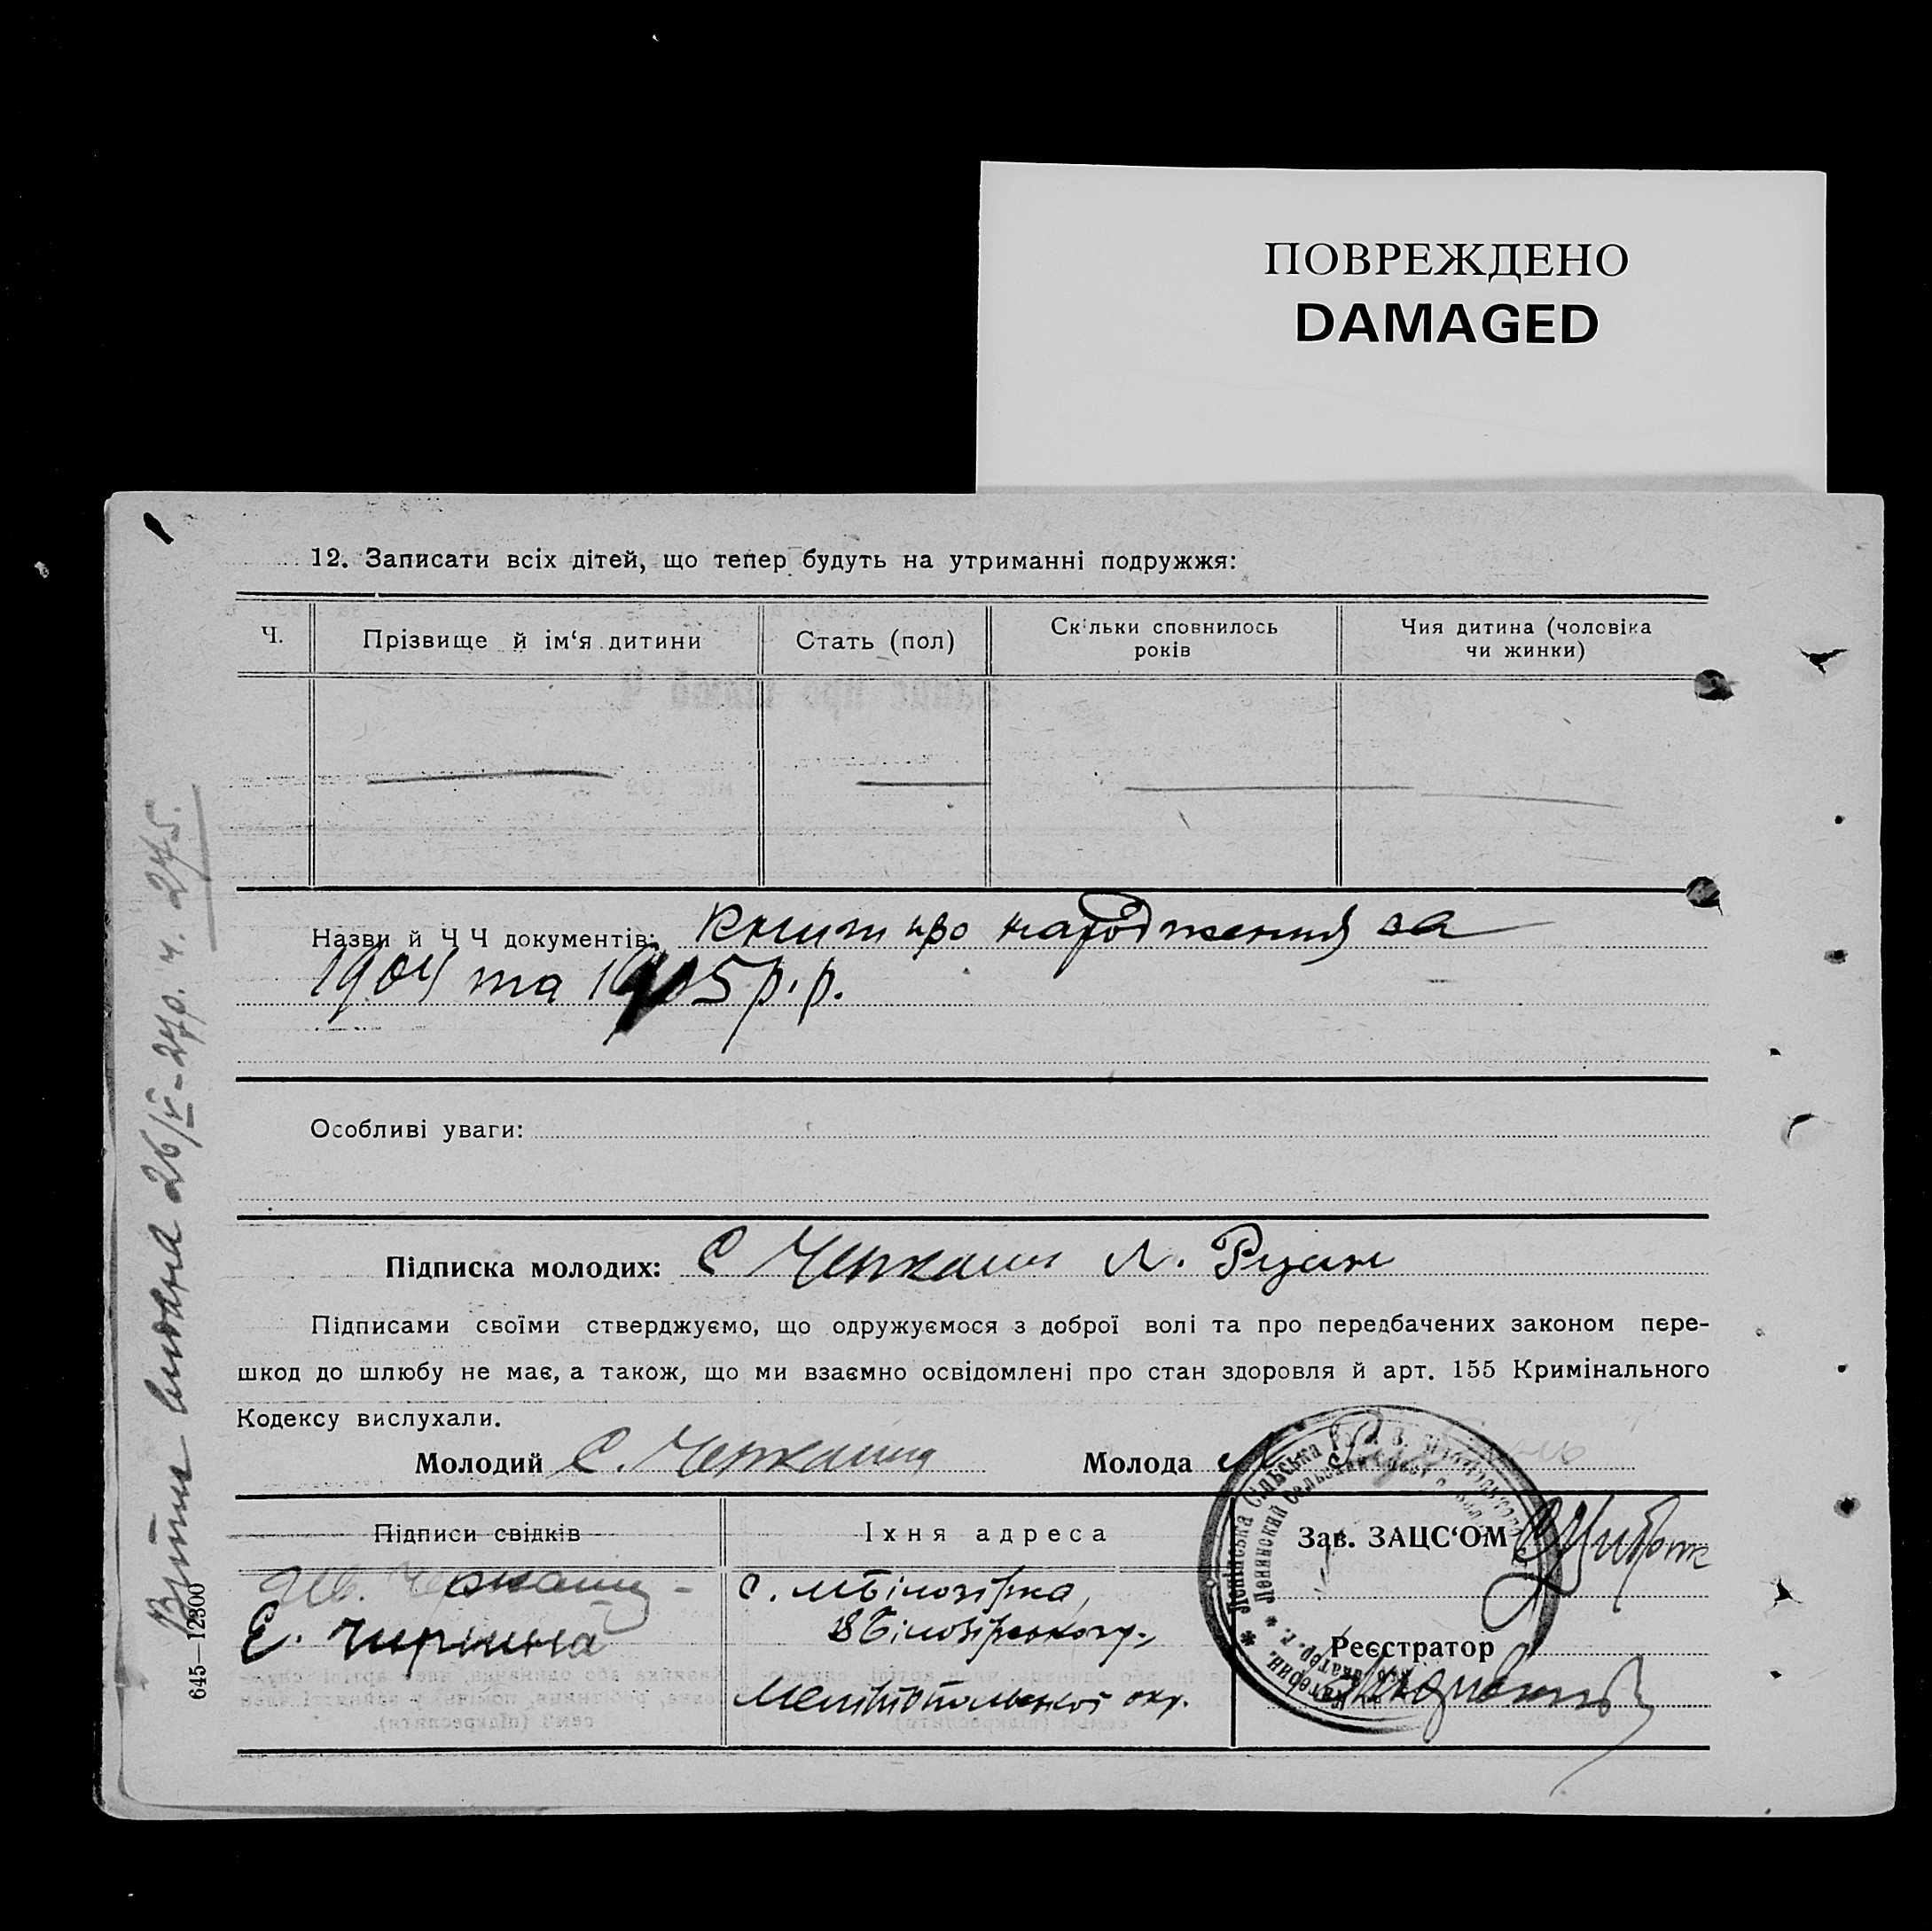 ПОВРЕЖДЕНО
DAMAGED
12. Записати всіх дітей, що тепер будуть на утриманні подружжя:
Ч.
Прізвище й ім‘я дитини
Стать (пол)
Скільки сповнилось
років
Чия дитина (чоловіка
чи жинки)
Назви й Ч Ч документів: книги про народження за
1904 та 1905 р.р.
Особливі уваги:
Підписка молодих: С Черкашин Л.
Підписами своїми стверджуємо, що одружуємося з доброї волі та про передбачених законом пере-
шкод до шлюбу не має, а також, що ми взаємно освідомлені про стан здоровля й арт. 155 Кримінального
Кодексу вислухали.
Молодий С. Черкашин Молода
Підписи свідків
Іхня адреса
Зав. ЗАЦС‘ОМ
Ив. Черкашин
Е.
с. МБілозірка,
ВБілозірського р.,
Мелітопольської окр.
Реєстратор
Ленінська Сільська
Ленинский Сельский
Витяг видана 26/V–27р. ч. 275.
645—12300